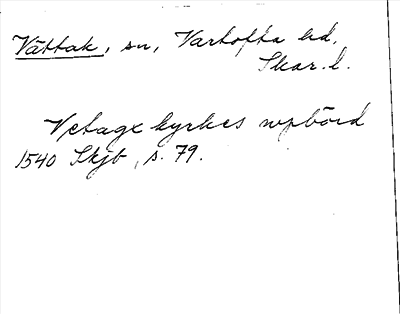 Vättak, sn, Vartofta hd,
Skar. l.
Vetage kyrkes wpbörd
1540 Skjb, s. 79.